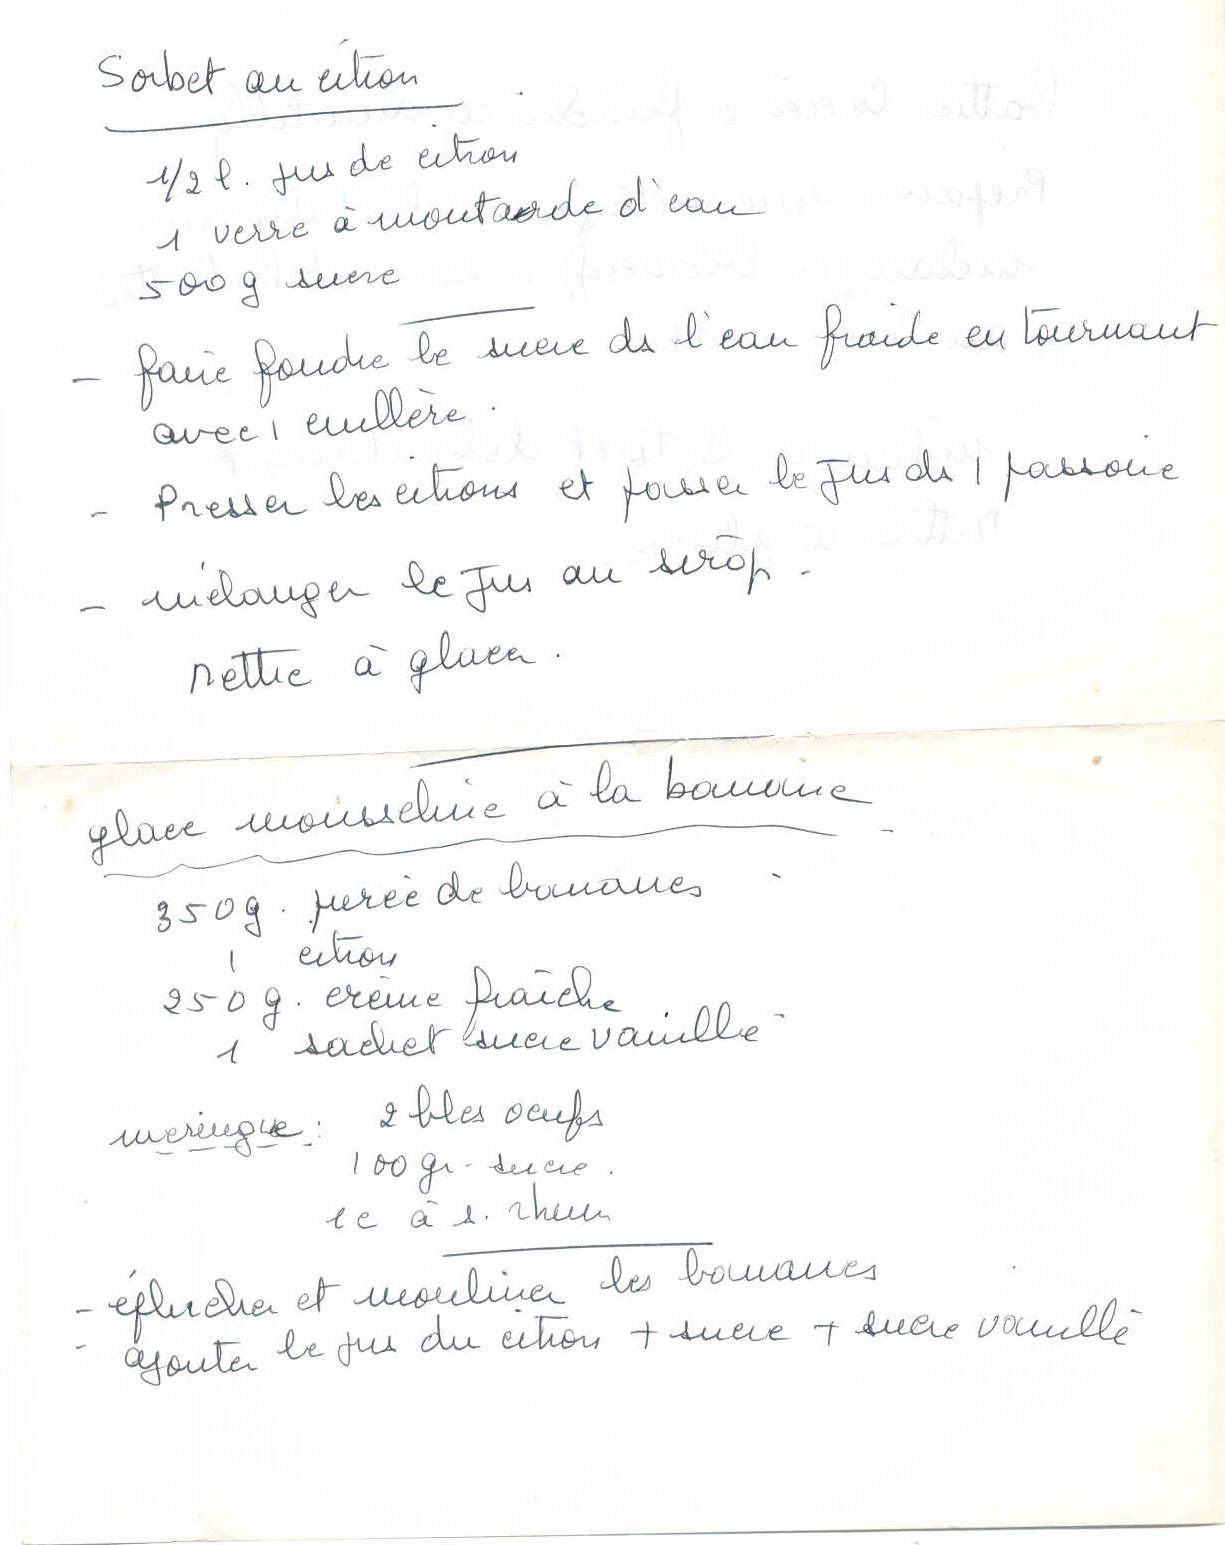 Sorbet au citron
1/2 l. jus de citron
1 verre à moutarde d'eau
500 g sucre
- faire fondre le sucre ds l'eau froide en tournant
avec 1 cuillère.
- Presser les citrons et passer le jus ds 1 passoire
- mélanger le jus au sirôp.
Mettre à glacer.
glace mousseline à la banane
350 g. purée de bananes
1 citron
250 g. crème fraîche
1 sachet sucre vanillé
meringue : 2 blcs oeufs
100 gr. sucre.
1 c à s. rhum
- éplucher et mouliner les bananes
- ajouter le jus du citron + sucre + sucre vanillé